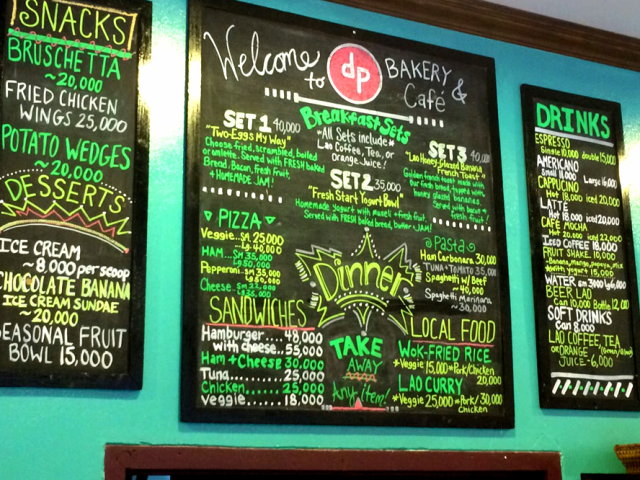 SNACKS
BRUSCHETTA
~20,000
FRIED CHICKEN
WINGS 25,000
POTATO WEDGES
~20,000
DESSERTS
ICE CREAM
~8,000 per scoop
CHOCOLATE BANANA
ICE CREAM SUNDAE
~20,000
SEASONAL FRUIT
BOWL 15,000
Welcome
to
dp
BAKERY &
Café
Breakfast Sets
*All Sets include*
Lao Coffee, Tea, or
Orange Juice!
SET 1 40,000
"Two Eggs My Way"
Choose fried, scrambled, boiled
or omlette. Served with FRESH baked
Bread, Bacon, fresh fruit,
+ HOMEMADE JAM!
SET 2 35,000
"Fresh Start Yogurt Bowl"
Homemade yogurt with muesli + fresh fruit.
Served with FRESH baked bread, butter + JAM!
SET 3 40,000
"Lao Honey Glazed Banana
French Toast"
Golden french toast made with
our fresh bread, topped with
honey glazed bananas.
Served with bacon +
fresh fruit!
PIZZA
Veggie..SM 25,000
LG 40,000
HAM...SM 35,000
LG 50,000
Pepperoni..SM 35,000
LG 50,000
Cheese..SM 22,000
LG 35,000
Dinner
Pasta
Ham Carbonara 30,000
TUNA + TOMATO 35,000
Spaghetti w/ Beef
~40,000
Spaghetti Marinara
~30,000
SANDWICHES
Hamburger....48,000
with cheese...55,000
Ham + Cheese 30,000
Tuna..........25,000
Chicken......25,000
Veggie.......18,000
TAKE
AWAY
Any Item!
LOCAL FOOD
WOK-FRIED RICE
*Veggie 15,000 *Pork/Chicken
20,000
LAO CURRY
*Veggie 25,000 *Pork/ 30,000
Chicken
DRINKS
ESPRESSO
Single 10,000 double 15,000
AMERICANO
Small 11,000 Large 16,000
CAPPUCINO
Hot 18,000 iced 20,000
LATTE
Hot 18,000 iced 20,000
CAFE MOCHA
Hot 20,000 iced 22,000
ICED COFFEE 18,000
FRUIT SHAKE 10,000
Banana, mango, papaya, mix
with yogurt 15,000
WATER SM 3000 lg 6,000
BEER LAO
Can 10,000 Bottle 12,000
SOFT DRINKS
Can 8,000
LAO COFFEE, TEA
or ORANGE
JUICE - 6,000